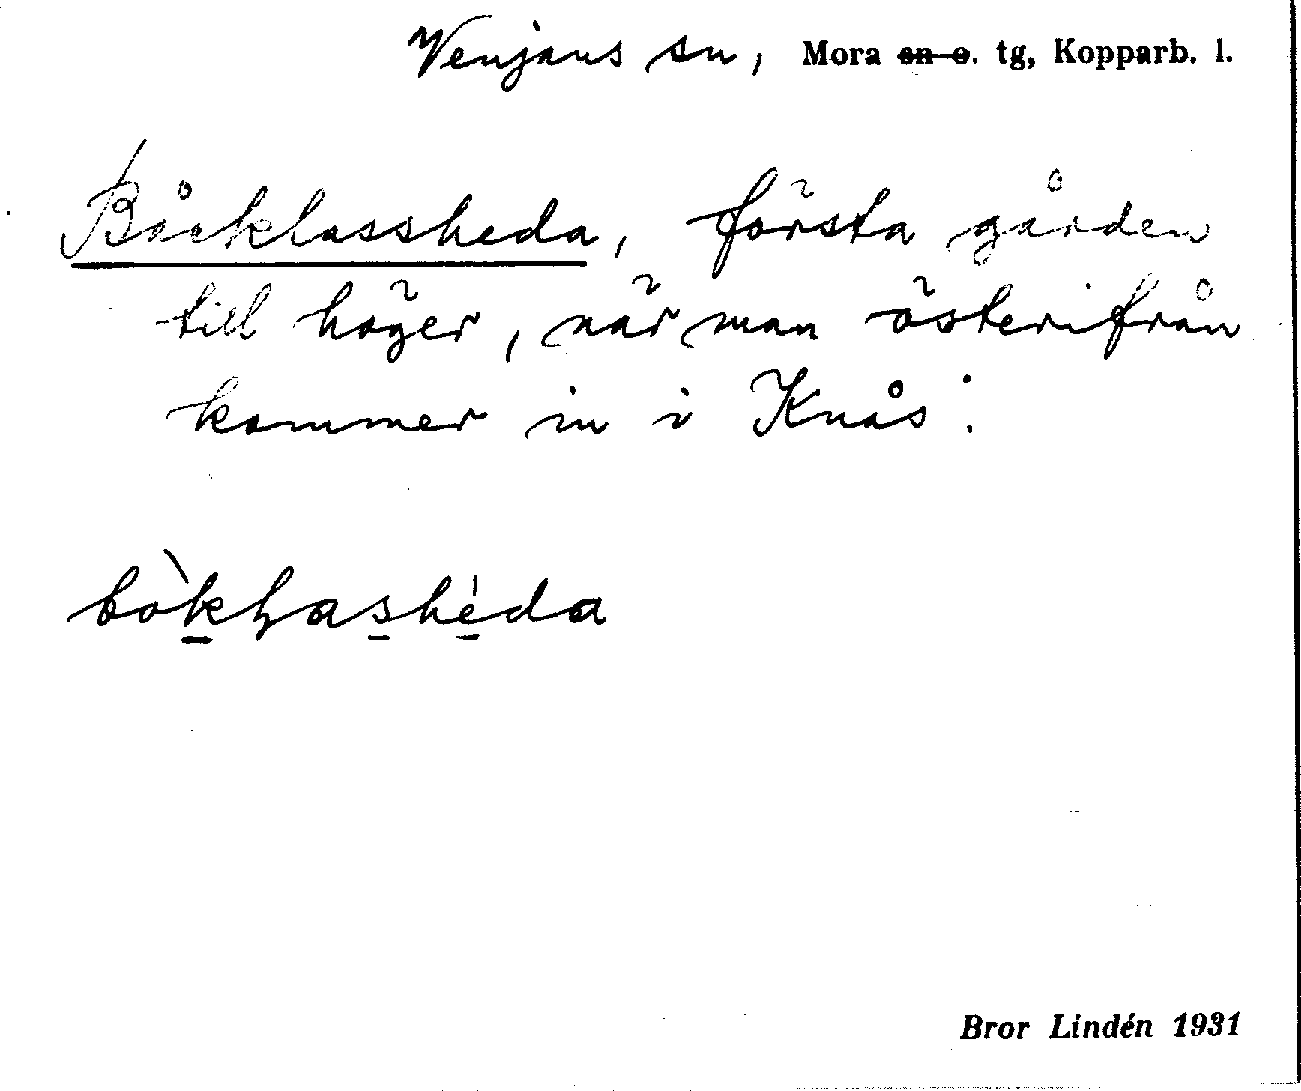 Venjans sn, Mora sn o. tg, Kopparb. l.
Båcklassheda, första gården
till höger, när man österifrån
kommer in i Knås.
bòkɬashèda
Bror Lindén 1931